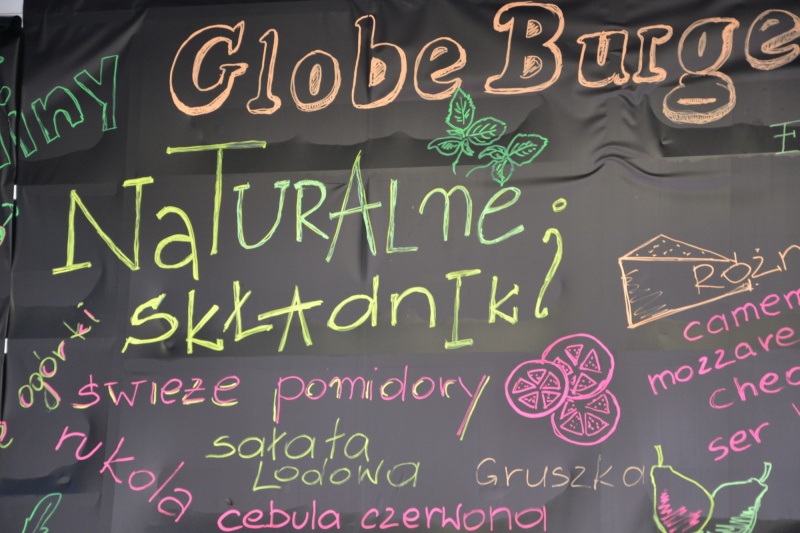 Globe Burge
iny
NaTURALne
SKŁAdnIki
RÓŻN
camem
mozzare
ched
ser
ogórki
świeże pomidory
rukola
sałata
Lodowa
Gruszka
cebula czerwona